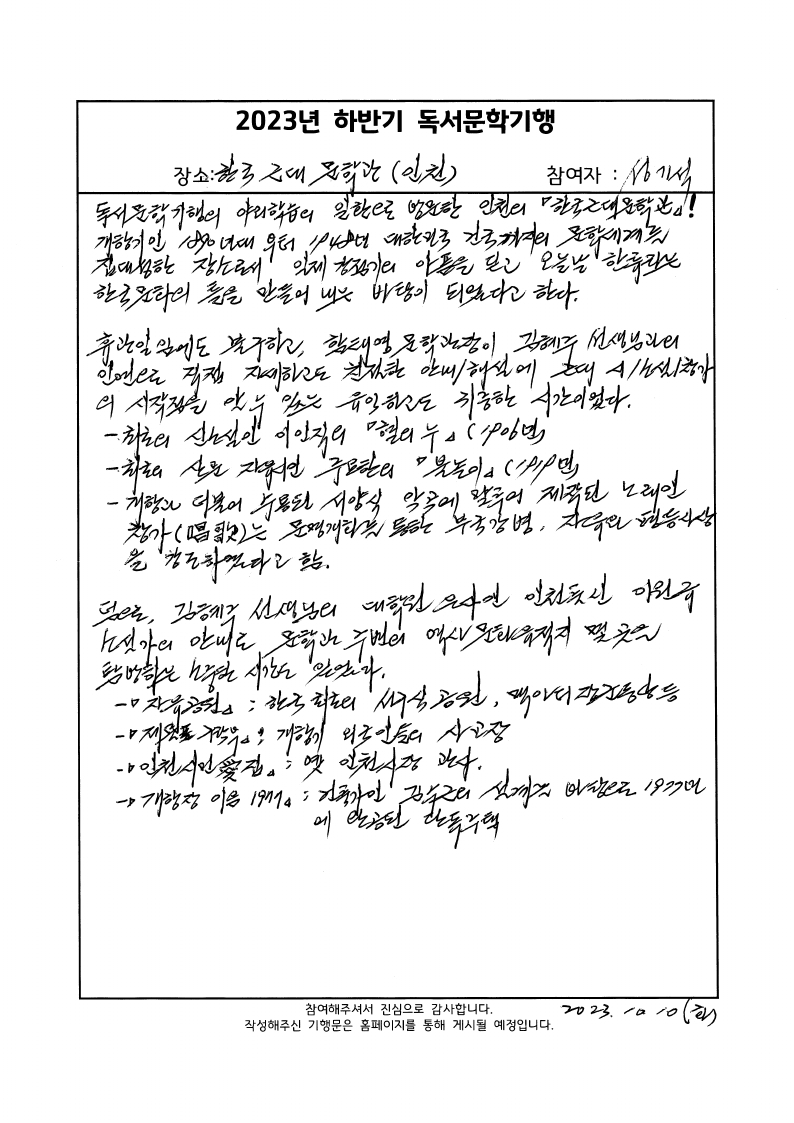 2023년 하반기 독서문학기행
장소:한국 근대 문학관 (인천) 참여자 : 성기석
독서문학기행의 야외학습의 일환으로 방문한 인천의 『한국근대문학관』!
개항기인 1890년대 부터 1948년 대한민국 건국까지의 문학세계를
집대성한 장소로서 일제 강점기의 아픔을 딛고 오늘날 한류라는
한국문화의 틀을 만들어 내는 바탕이 되었다고 한다.
휴관일 임에도 불구하고, 함태영 문학관장이 김혜주 선생님과의
인연으로 직접 자세하고도 친절한 안내/해설에 근대 시/소설/창가
의 시작점을 알 수 있는 유익하고도 귀중한 시간이었다.
- 최초의 신소설인 이인직의 『혈의 누』 (1906년)
- 최초의 산문 자유시인 주요한의 『불놀이』 (1919년)
- 개항과 더불어 수용된 서양식 악곡에 맞추어 제작된 노래인
창가(唱歌)는 문명개화를 통한 부국강병, 자유와 평등사상
을 강조하였다고 함.
덤으로, 김혜주 선생님의 대학원 은사인 인천출신 이원규
소설가의 안내로 문학관 주변의 역사 문화유적지 몇 곳을
탐방하는 소중한 시간도 있었다.
-『자유공원』 : 한국 최초의 서구식 공원, 맥아더장군동상 등
-『제물포 구락부』: 개항기 외국인들의 사교장
-『인천시민愛집』: 옛 인천시장 관사.
-『개항장 이음 1977』: 건축가인 김수근의 설계를 바탕으로 1977년
에 완공된 단독주택
참여해주셔서 진심으로 감사합니다. 2023. 10. 10 (화)
작성해주신 기행문은 홈페이지를 통해 게시될 예정입니다.